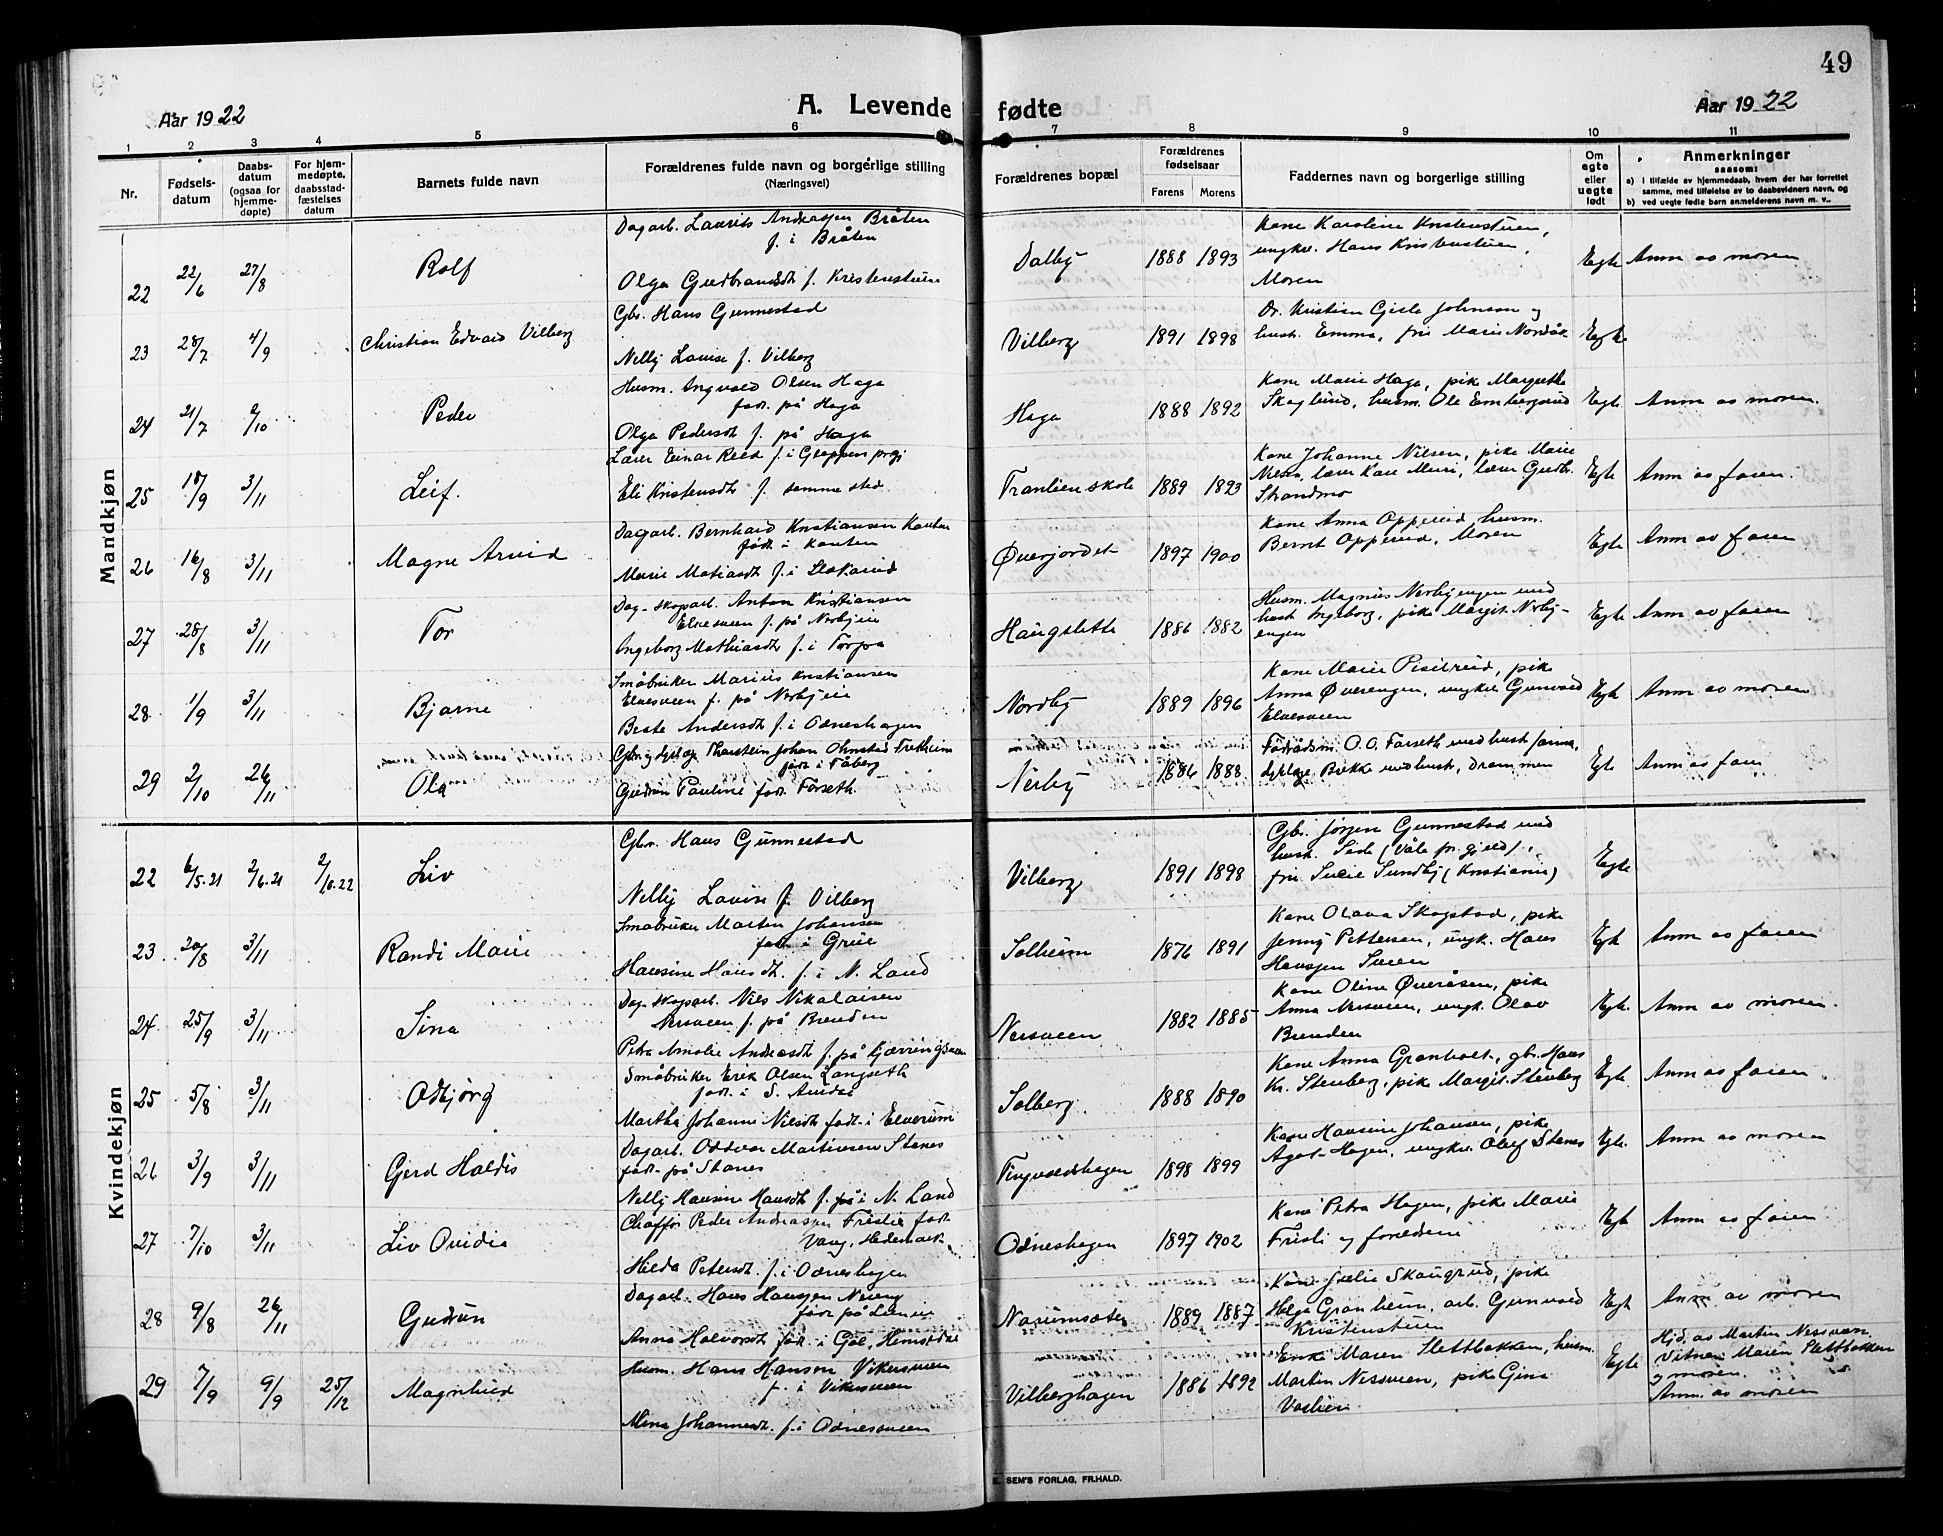 49
Aar 1922
A. Levende fødte
Aar 1922
1 2 3 4 5 6 7 8 9 10 11
Nr.
Fødsels-
datum
Daabs-
datum
(ogsaa for
hjemme-
døpte)
For hjem-
medøpte,
daabsstad-
fæstelses
datum
Barnets fulde navn
Forældrenes fulde navn og borgerlige stilling
(Næringsvei)
Forældrenes bopæl
Forældrenes
fødselsaar
Farens Morens
Faddernes navn og borgerlige stilling
Om
egte
eller
uegte
født
Anmerkninger
saasom:
a) i tilfælde av hjemmedaab, hvem der har forrettet
samme, med tilføielse av to daabsvidners navn, og
b) ved uegte fødte barn anmelderens navn m. v..
Mandkjøn
22 22/6 27/8 Rolf
Dagarb. Laurits Andreassen Bråten
f. i Bråten
Olga Gudbrandsdt f. Kristenstuen
Dalby 1888 1893
Kone Karoline Kristenstuen,
ungkar. Hans Kristenstuen,
Moren
Egte Anm av moren
23 28/7 4/9 Christian Edvard Vilberg
Gbr. Hans Gunnestad
Nelly Louise f. Vilberg
Vilberg 1891 1898
Dr. Kristian Gisle Johnson og
hust. Emma, frk Marie Nordåk
Egte
24 21/7 /10 Peder
Husm. Ingvald Olsen Haga
født på Haga
Olga Pedersdt f. på Haga
Haga 1888 1892
Kone Marie Haga, pike Margrethe
Skoglund, husm. Ole Embergsrud
Egte Anm av moren.
25 18/9 3/11 Leif.
Lærer Einar Reid f. i Gloppen prgj
Eli Kristensdt f. samme sted
Tranlien skole 1889 1893
Kone Johanne Nilsen, pike Marie
lærer Kåre lærer Gudb.
Strandmo
Egte Anm av faren.
26 16/8 3/11 Magne Arvid
Dagarb. Bernhard Kristiansen Kanten
født i Kanten
Marie Matiasdt f. i
Øverjordet 1897 1900
Kone Anna Opperud, husm.
Bernt Opperud, Moren
Egte Anm av faren
27 28/8 3/11 Tor
Dag- skogarb. Anton Kristiansen
Elvesveen f. på Nerbyeie
Ingeborg Mathiasdt f. i Torpa
Haugslette 1886 1882
Husm. Magnus Nerbyengen med
hust Ingeborg, pike Margit Nerby-
engen
Egte Anm av faren
28 1/9 3/11 Bjarne
Småbruker Marius Kristiansen
Elvesveen f. på Nerbyeie
Beate Andersdt f. i Odneshagen
Nordby 1889 1896
Kone Marie Piselrud, pike
Anna Øverengen, ungkar Gunvald
Elvesveen
Egte Anm av moren
29 2/10 26/11 Ola
Gbr. og dyrlæge Thorstein Johan Ohnstad Fretheim
født i Fåberg
Gudrun Pauline født Forseth
Nerby 1886 1888
Føderådsm. O. O. Forseth med hust Janna,
dyrlæge Bakke med hust, Drammen
Egte Anm av faren
Kvindekjøn
22 6/5.21 2/6.21 2/10.22 Liv
Gbr. Hans Gunnestad
Nelly Louise f. Vilberg
Vilberg 1891 1898
Gbr. Jørgen Gunnestad med
hust. (Våle pr.gjeld),
frk Sundby (Kristiania)
Egte
23 20/8 3/11 Randi Marie
Småbruker Martin Johansen
født i Grue
Hansine Hansdt. f. i N. Land
Solheim 1876 1891
Kone Olava Skogstad, pike
Jenny Pettersen, ungk. Hans
Hanssen
Egte Anm av faren
24 25/9 3/11 Sina
Dag- skogarb. Nils Nikolaisen
Nersveen f. på Brenden
Petra Amalie Andreasdt f. på Kjærringsveen
Nersveen 1882 1885
Kone Oline Øveråsen, pike
Anna Nersveen, ungk. Olav
Brenden
Egte Anm av moren.
25 5/8 3/11 Odbjørg
Småbruker Erik Olsen Langseth
født i S. Aurdal
Martha Johanne Nilsdt født i Elverum
Solberg 1888 1890
Kone Anna Granholt, gbr. Hans
Kr. Stenberg, pike Margit Stenberg
Egte. Anm av faren
26 3/9 3/11 Gjerd Haldis
Dagarb. Oddvar Martinsen Stenes
født på Stenes
Nelly Hansine Hansdt f. på i N. Land
Tingvoldshagen 1898 1899
Kone Hansine Johansen, pike
Agot Hagen, ungkar Olaf Stenes
Egte. Anm av moren
27 7/10 3/11 Liv Ovidia
Chaffør Peder Andreassen Fristie født
Vang, Hedemark
Hilda Petersdt. f. i Odneshagen
Odneshagen 1897 1902
Kone Petra Hagen, pike Marie
Fristi og forældrene
Egte Anm av faren
28 9/8 26/11 Gudrun
Dagarb. Hans Hanssen
født på
Anna Halvorsdt født i Gol, Hemsedal
1889 1887
Kone Julie Skaugrud, pike
Helga Granheim, arb. Gunvald
Kristenstuen
Egte Anm av moren
29 7/9 9/9 25/12 Magnhild
Husm. Hans Hansen Vikersveen
f. i Vikersveen
Mina Johannesdt. f. i Odnessveen
Vilberghagen 1886 1892
Enke Maren Slettbakken, husm.
Martin Nessveen, pike Gina
Vaslien
Egte Hjd. av Martin Nessveen
Vitner Maren Slettbakken
og moren.
Anm. av moren
E. SEM'S FORLAG, FR.HALD.